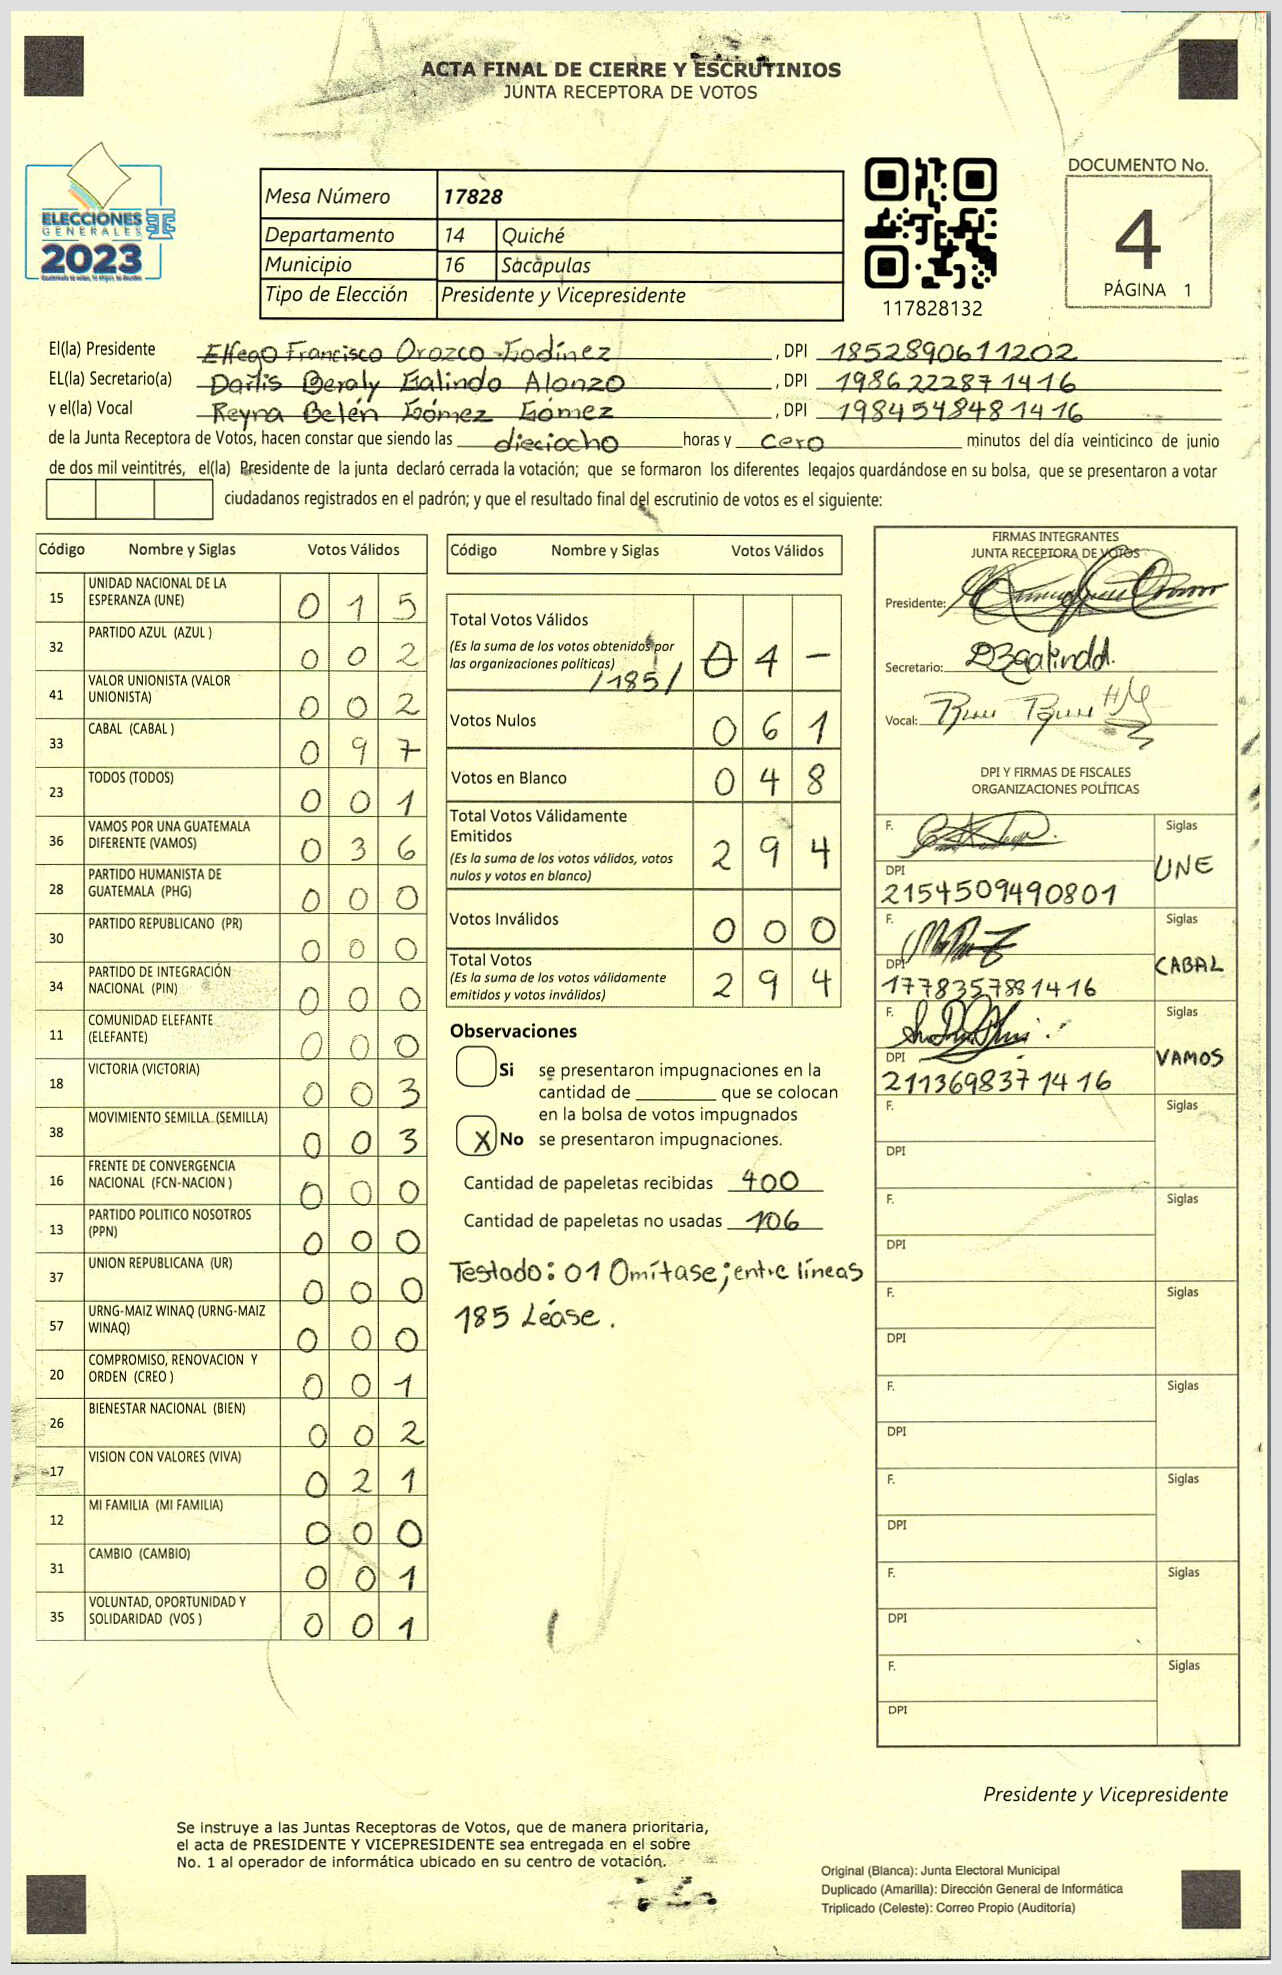 ACTA FINAL DE CIERRE Y ESCRUTINIOS
JUNTA RECEPTORA DE VOTOS
ELECCIONES
GENERALES
2023
Mesa Número 17828
Departamento 14 Quiché
Municipio 16 Sacapulas
Tipo de Elección Presidente y Vicepresidente
117828132
DOCUMENTO No.
4
PÁGINA 1
El(la) Presidente Elfego Francisco Orozco Godínez , DPI 1852890611202
EL(la) Secretario(a) Darlis Beraly Galindo Alonzo , DPI 1986222871416
y el(la) Vocal Reyna Belén Gómez Gómez , DPI 1984548481416
de la Junta Receptora de Votos, hacen constar que siendo las dieciocho horas y cero minutos del día veinticinco de junio
de dos mil veintitrés, el(la) Presidente de la junta declaró cerrada la votación; que se formaron los diferentes legajos quardándose en su bolsa, que se presentaron a votar
ciudadanos registrados en el padrón; y que el resultado final del escrutinio de votos es el siguiente:
Código Nombre y Siglas Votos Válidos
15 UNIDAD NACIONAL DE LA ESPERANZA (UNE) 0 1 5
32 PARTIDO AZUL (AZUL ) 0 0 2
41 VALOR UNIONISTA (VALOR UNIONISTA) 0 0 2
33 CABAL (CABAL ) 0 9 7
23 TODOS (TODOS) 0 0 1
36 VAMOS POR UNA GUATEMALA DIFERENTE (VAMOS) 0 3 6
28 PARTIDO HUMANISTA DE GUATEMALA (PHG) 0 0 0
30 PARTIDO REPUBLICANO (PR) 0 0 0
34 PARTIDO DE INTEGRACIÓN NACIONAL (PIN) 0 0 0
11 COMUNIDAD ELEFANTE (ELEFANTE) 0 0 0
18 VICTORIA (VICTORIA) 0 0 3
38 MOVIMIENTO SEMILLA (SEMILLA) 0 0 3
16 FRENTE DE CONVERGENCIA NACIONAL (FCN-NACION ) 0 0 0
13 PARTIDO POLITICO NOSOTROS (PPN) 0 0 0
37 UNION REPUBLICANA (UR) 0 0 0
57 URNG-MAIZ WINAQ (URNG-MAIZ WINAQ) 0 0 0
20 COMPROMISO, RENOVACION Y ORDEN (CREO ) 0 0 1
26 BIENESTAR NACIONAL (BIEN) 0 0 2
17 VISION CON VALORES (VIVA) 0 2 1
12 MI FAMILIA (MI FAMILIA) 0 0 0
31 CAMBIO (CAMBIO) 0 0 1
35 VOLUNTAD, OPORTUNIDAD Y SOLIDARIDAD (VOS ) 0 0 1
Código Nombre y Siglas Votos Válidos
Total Votos Válidos
(Es la suma de los votos obtenidos por
las organizaciones políticas) /185/ 0 1 -
Votos Nulos 0 6 1
Votos en Blanco 0 4 8
Total Votos Válidamente
Emitidos
(Es la suma de los votos válidos, votos
nulos y votos en blanco) 2 9 4
Votos Inválidos 0 0 0
Total Votos
(Es la suma de los votos válidamente
emitidos y votos inválidos) 2 9 4
Observaciones
Si se presentaron impugnaciones en la
cantidad de ________ que se colocan
en la bolsa de votos impugnados
X No se presentaron impugnaciones.
Cantidad de papeletas recibidas 400
Cantidad de papeletas no usadas 106
Testado: 01 Omítase; entre líneas
185 Léase.
FIRMAS INTEGRANTES
JUNTA RECEPTORA DE VOTOS
Presidente:
Secretario: DBGalindo
Vocal:
DPI Y FIRMAS DE FISCALES
ORGANIZACIONES POLÍTICAS
F. Siglas
UNE
DPI
2154509490801
F. Siglas
CABAL
DPI
1778357881416
F. Siglas
VAMOS
DPI
2113698371416
F. Siglas
DPI
F. Siglas
DPI
F. Siglas
DPI
F. Siglas
DPI
F. Siglas
DPI
F. Siglas
DPI
F. Siglas
DPI
Presidente y Vicepresidente
Se instruye a las Juntas Receptoras de Votos, que de manera prioritaria,
el acta de PRESIDENTE Y VICEPRESIDENTE sea entregada en el sobre
No. 1 al operador de informática ubicado en su centro de votación.
Original (Blanca): Junta Electoral Municipal
Duplicado (Amarilla): Dirección General de Informática
Triplicado (Celeste): Correo Propio (Auditoría)